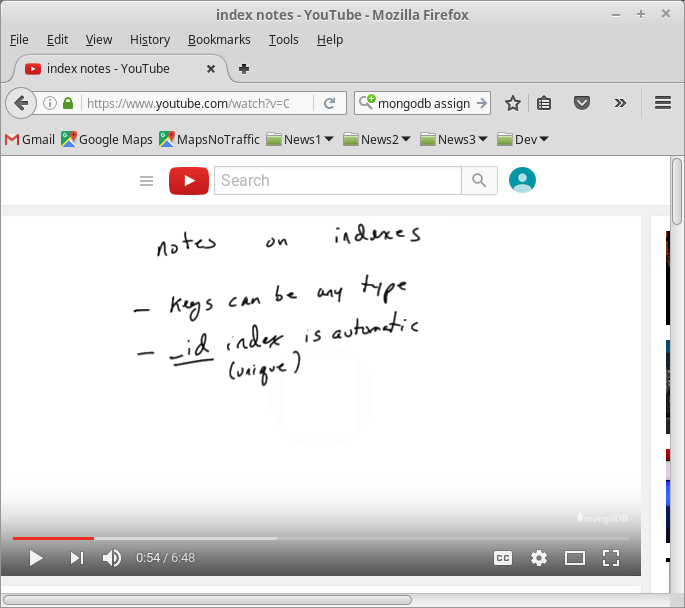 index notes - YouTube - Mozilla Firefox
File Edit View History Bookmarks Tools Help
index notes - YouTube
https://www.youtube.com/watch?v=C mongodb assign
Gmail Google Maps MapsNoTraffic News1 News2 News3 Dev
Search
notes on indexes
- keys can be any type
- _id index is automatic
(unique)
mongoDB
0:54 / 6:48 CC